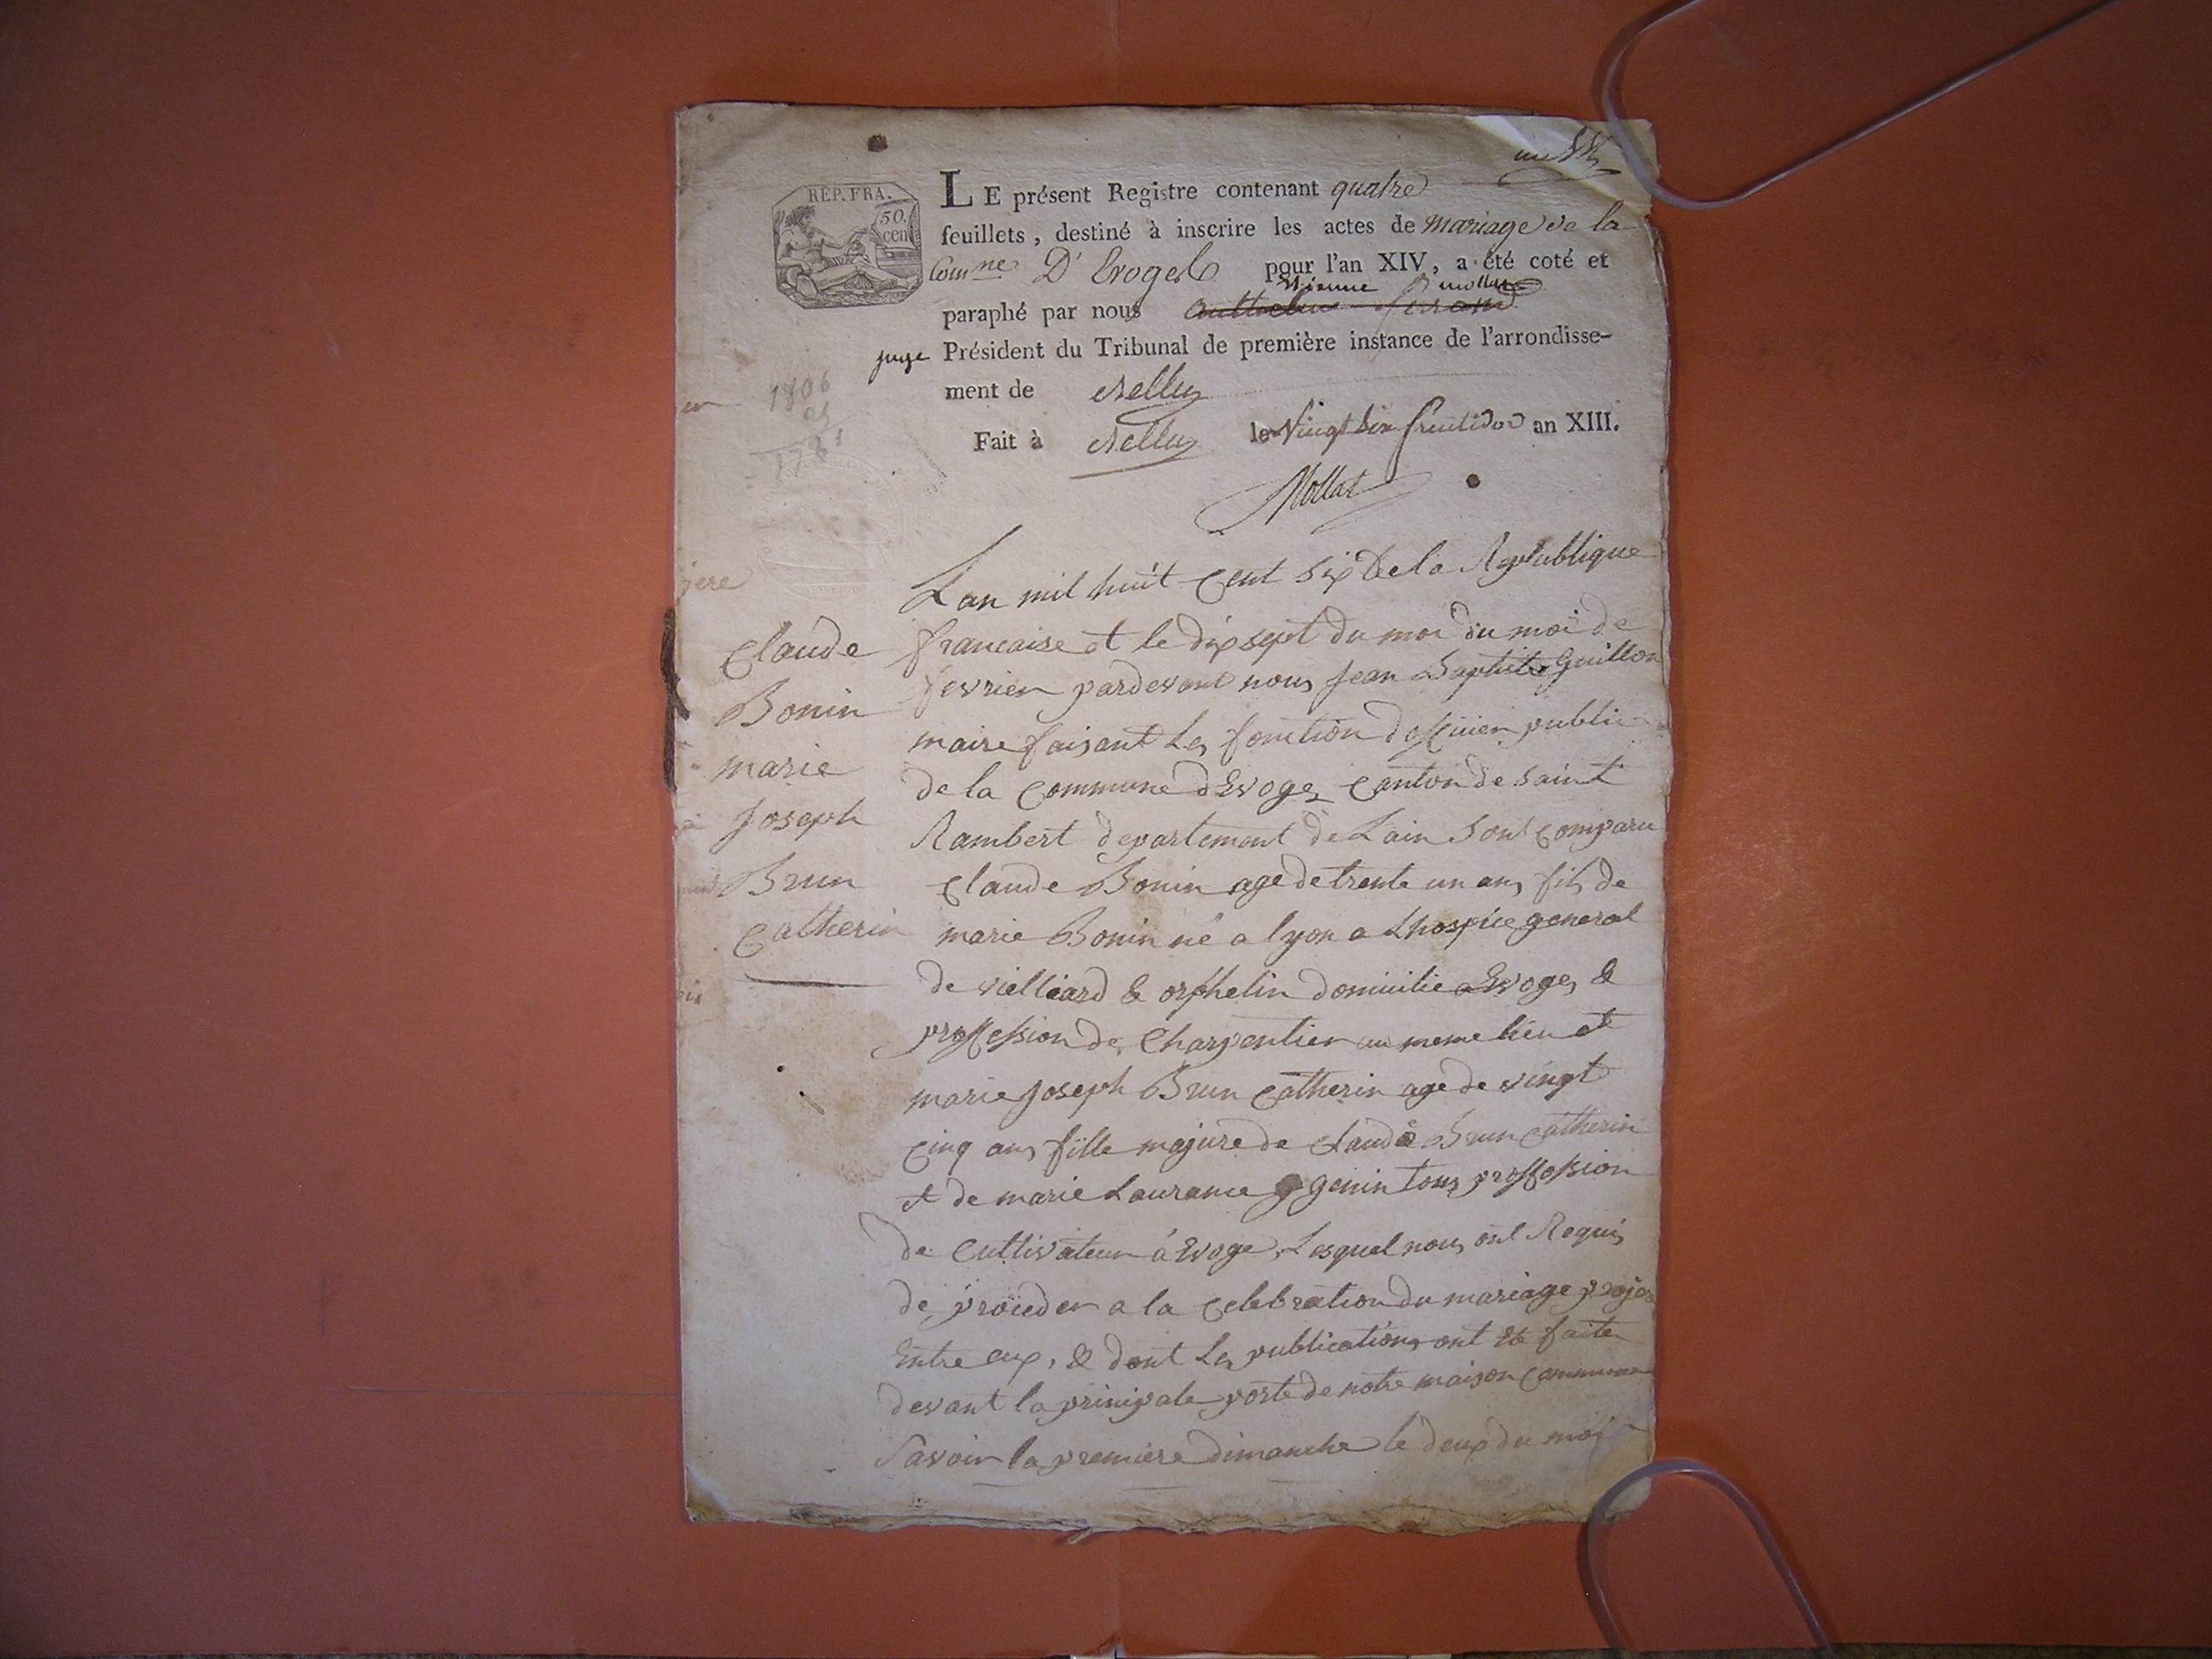 REP. FRA.
50.
cen
LE présent Registre contenant quatre
feuillets, destiné à inscrire les actes de mariage de la
Comne D'Evoges pour l'an XIV, a été coté et
paraphé par nous
juge Président du Tribunal de première instance de l'arrondisse-
ment de Belley
Fait à Belley le Vingt Six fructidor an XIII.
Mollat
1806
Claude
Bonin
marie
Joseph
Brun
Catherin
Lan mil huit Cent Six de la Republique
francaise et le dix sept du moi du moi de
fevrier pardevant nous Jean Baptiste Guillon
maire faisant Les fonction dofficier public
de la Commune dEvoges Canton de Saint
Rambert departement de Lain Sont Comparu
Claude Bonin age de trente un ans fils de
marie Bonin né a lyon a Lhospice general
de vielliard & orphelin domicilie a Evoges &
proffession de Charpentier au meme lieu et
marie Joseph Brun Catherin age de vingt
Cinq ans fille majure de Claude Brun Catherin
et de marie Laurance genin tous proffession
de Cultivateur á Evoges, Lesquel nous ont Requis
de proceder a la Celebration du mariage projet
Entre eux, & dont Les publications ont Eté faite
devant la principale porte de notre maison Commune
Savoir la premiere dimanche le deux du mois